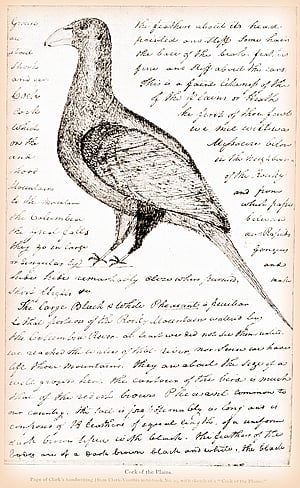 the feathers about its head
pointed and stiff Some hairs
the base of the beak. feathers
fine and stiff about the ears.
This is a faint likeness of the
Cock of the Plains or Heath
Cock the first of those fowls
which we met with was
on the Missouri below
and in the neighbour
hood of the Rocky
Mountains and from
to the mountain which pass
the Columbia between
the Great falls and Rapids
they go in large gangues
or singularly and
hide hide remarkably close when pursued, make
short flights &c
The large Black & White Pheasant is peculiar
to that portion of the Rocky Mountains watered by
the Columbia River. at least we did not see them until
we reached the waters of that river, nor Since we have
left those Mountains. they are about the size of a
well grown hen. the contour of the bird is much
that of the redish brown Pheasant common to
our country. the tail is proportionably as long and is
composed of 18 feathers of equal length, of a uniform
dark brown tiped with black. the feathers of the
body are of a dark brown black and white. the black
Cock of the Plains.